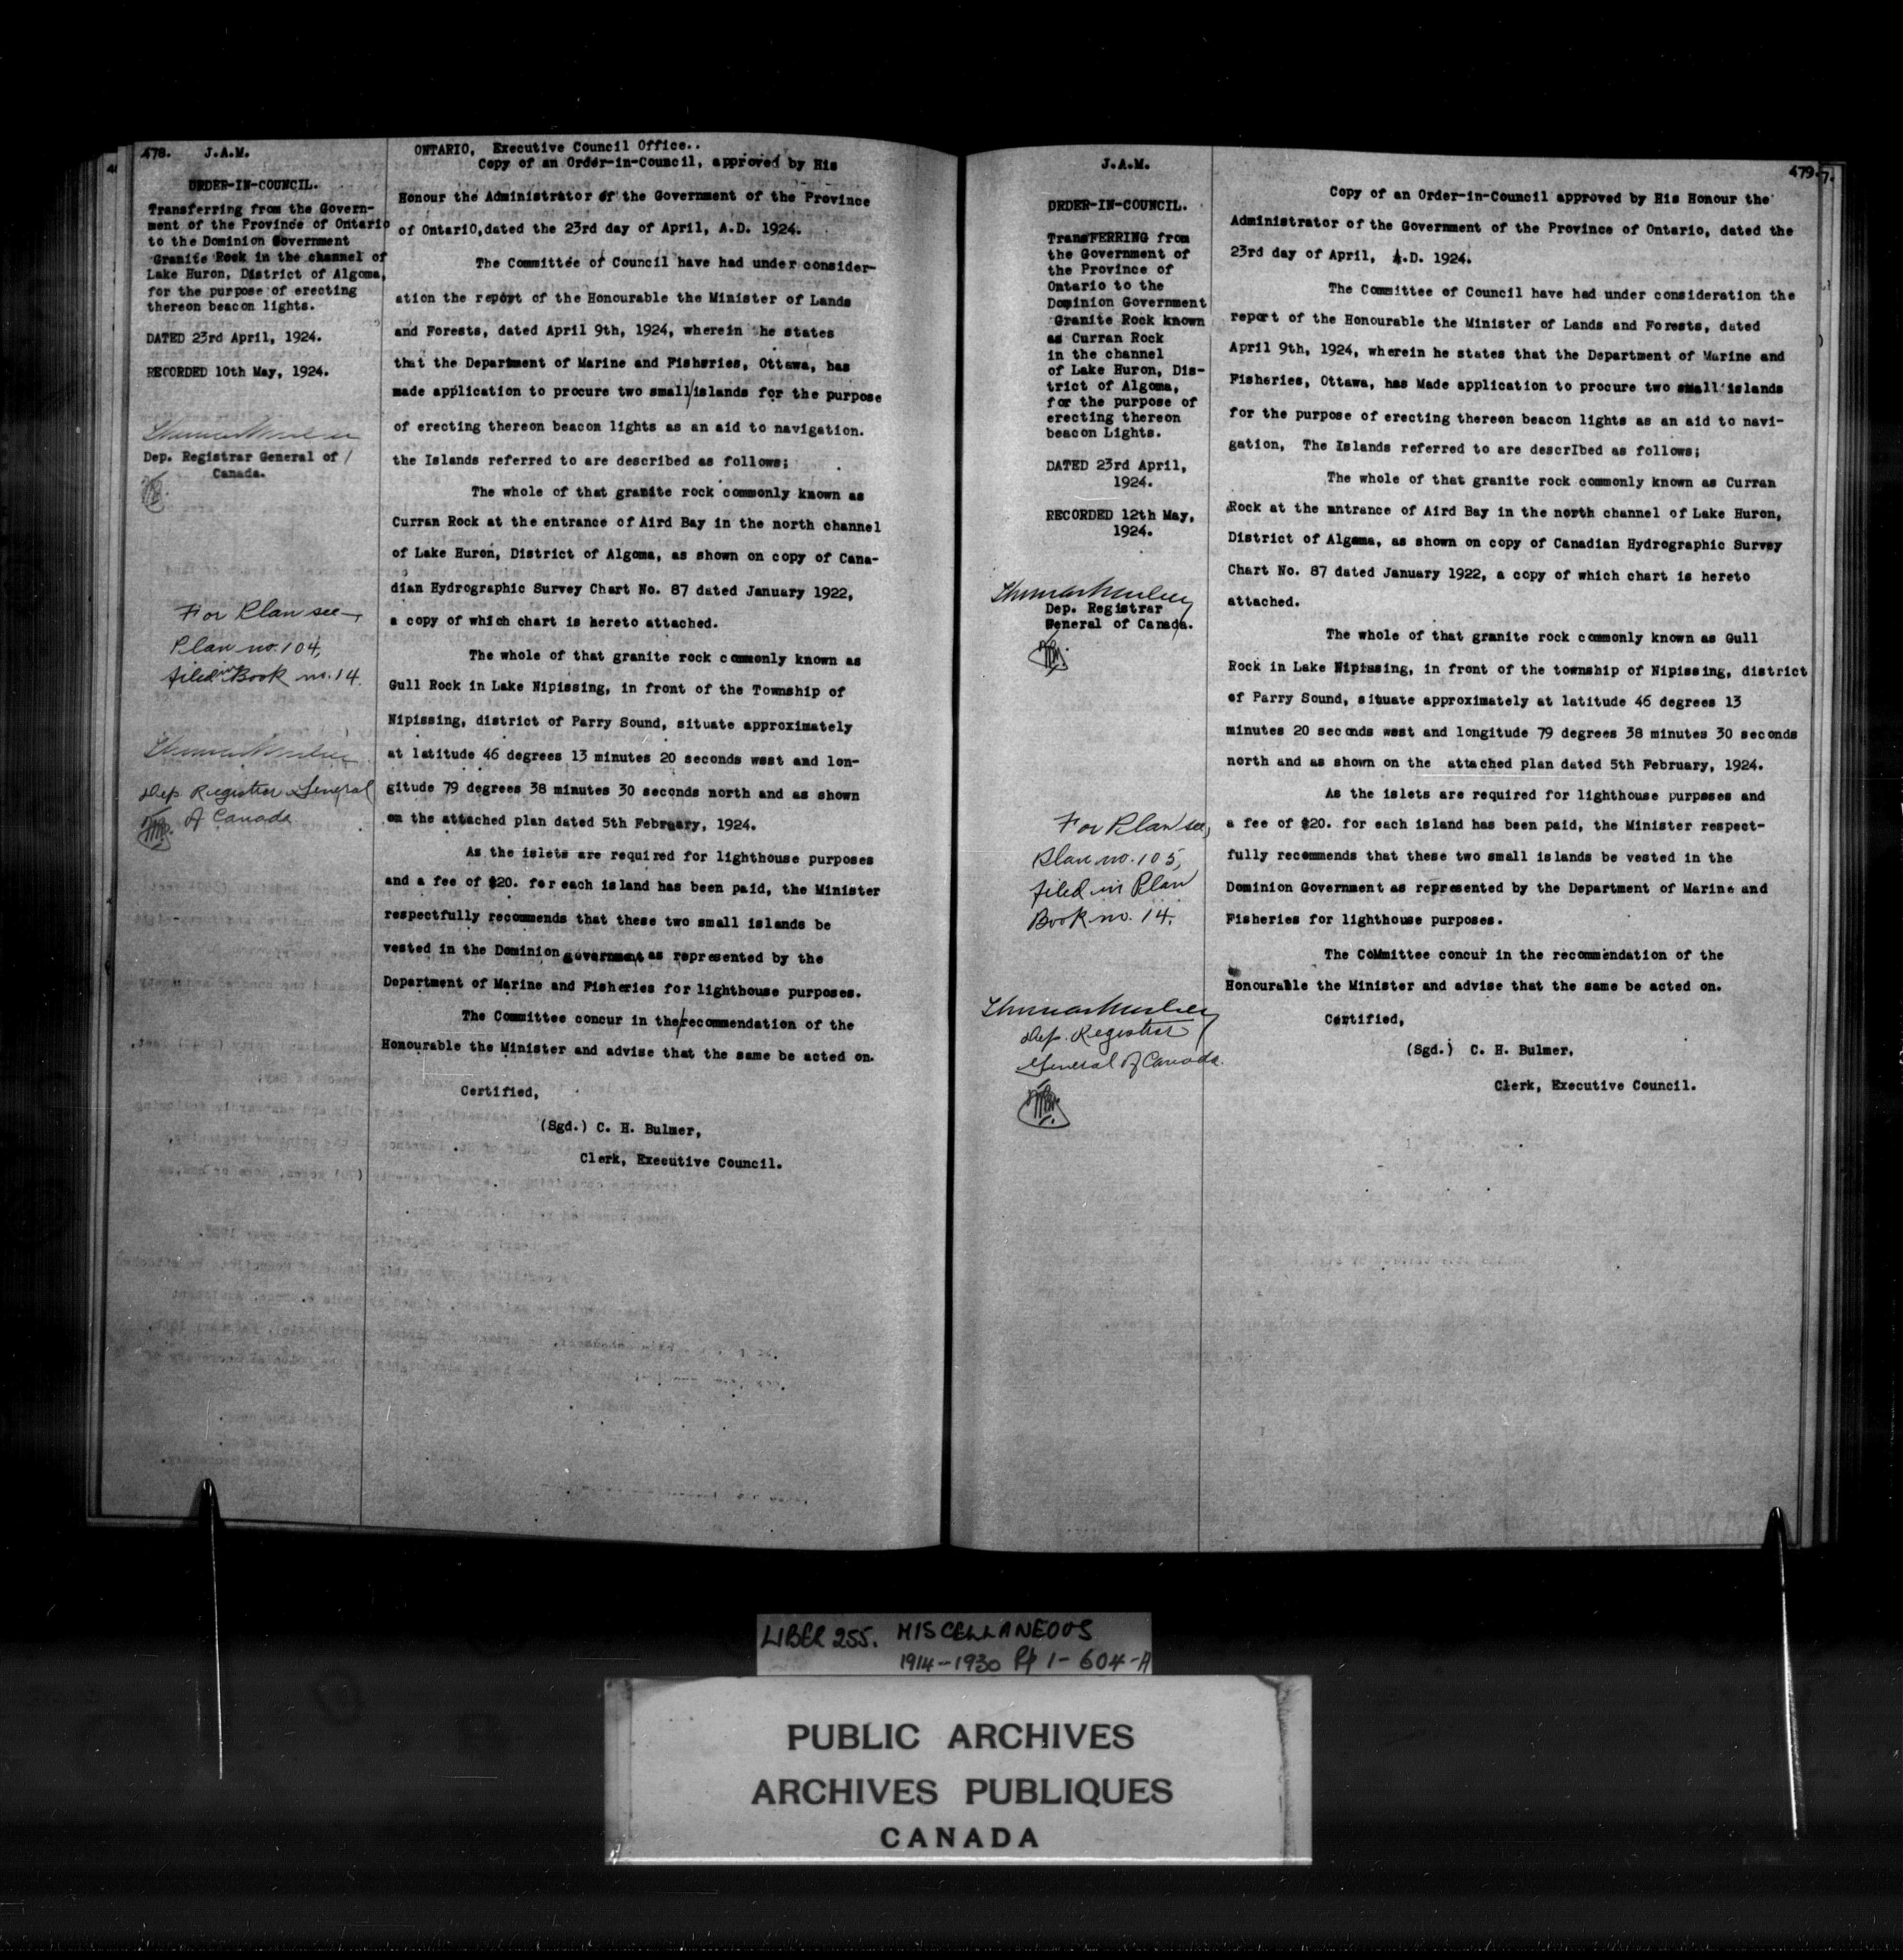 478.
J.A.M.
ORDER-IN-COUNCIL.
Transferring from the Govern-
ment of the Province of Ontario
to the Dominion Government
Granite Rock in the channel of
Lake Huron, District of Algoma,
for the purpose of erecting
thereon beacon lights.
DATED 23rd April, 1924.
RECORDED 10th May, 1924.
Dep. Registrar General of
Canada.
For Plan see
Plan no. 104,
filed in Book no. 14.
Dep Registrar General
of Canada
ONTARIO, Executive Council Office..
Copy of an Order-in-Council, approved by His
Honour the Administrator of the Government of the Province
of OntariO,dated the 23rd day of April, A.D. 1924.
The Committee of Council have had under consider-
ation the report of the Honourable the Minister of Lands
and Forests, dated April 9th, 1924, wherein he states
that the Department of Marine and Fisheries, Ottawa, has
made application to procure two small/islands for the purpose
of erecting thereon beacon lights as an aid to navigation.
the Islands referred to are described as follows;
The whole of that granite rock commonly known as
Curran Rock at the entrance of Aird Bay in the north channel
of Lake Huron, District of Algoma, as shown on copy of Cana-
dian Hydrographic Survey Chart No. 87 dated January 1922,
a copy of which chart is hereto attached.
The whole of that granite rock commonly known as
Gull Rock in Lake Nipissing, in front of the Township of
Nipissing, district of Parry Sound, situate approximately
at latitude 46 degrees 13 minutes 20 seconds west and lon-
gitude 79 degrees 38 minutes 30 seconds north and as shown
on the attached plan dated 5th February, 1924.
As the islets are required for lighthouse purposes
and a fee of $20. for each island has been paid, the Minister
respectfully recommends that these two small islands be
vested in the Dominion government as represented by the
Department of Marine and Fisheries for lighthouse purposes.
The Committee concur in the/recommendation of the
Honourable the Minister and advise that the same be acted on.
Certified,
(Sgd.) C. H. Bulmer,
Clerk, Executive Council.
J.A.M.
479.
7.
ORDER-IN-COUNCIL.
TransFERRING from
the Government of
the Province of
Ontario to the
Dominion Government
Granite Rock known
as Curran Rock
in the channel
of Lake Huron, Dis-
trict of Algoma,
for the purpose of
erecting thereon
beacon Lights.
DATED 23rd April,
1924.
RECORDED 12th May,
1924.
Dep. Registrar
General of Canada.
For Plan see,
Plan no. 105,
filed in Plan
Book no. 14.
Dep. Registrar
General of Canada.
Copy of an Order-in-Council approved by His Honour the
Administrator of the Government of the Province of Ontario, dated the
23rd day of April, A.D. 1924.
The Committee of Council have had under consideration the
report of the Honourable the Minister of Lands and Forests, dated
April 9th, 1924, wherein he states that the Department of Marine and
Fisheries, Ottawa, has Made application to procure two small islands
for the purpose of erecting thereon beacon lights as an aid to navi-
gation, The Islands referred to are descrIbed as follows;
The whole of that granite rock commonly known as Curran
Rock at the entrance of Aird Bay in the north channel of Lake Huron,
District of Algoma, as shown on copy of Canadian Hydrographic Survey
Chart No. 87 dated January 1922, a copy of which chart is hereto
attached.
The whole of that granite rock commonly known as Gull
Rock in Lake Nipissing, in front of the township of Nipissing, district
of Parry Sound, situate approximately at latitude 46 degrees 13
minutes 20 seconds west and longitude 79 degrees 38 minutes 30 seconds
north and as shown on the attached plan dated 5th February, 1924.
As the islets are required for lighthouse purposes and
a fee of $20. for each island has been paid, the Minister respect-
fully recommends that these two small islands be vested in the
Dominion Government as represented by the Department of Marine and
Fisheries for lighthouse purposes.
The CoMmittee concur in the recommendation of the
Honourable the Minister and advise that the same be acted on.
Certified,
(Sgd.) C. H. Bulmer,
Clerk, Executive Council.
LIBER 255. MISCELLANEOUS
1914-1930 Pp 1-604-A
PUBLIC ARCHIVES
ARCHIVES PUBLIQUES
CANADA